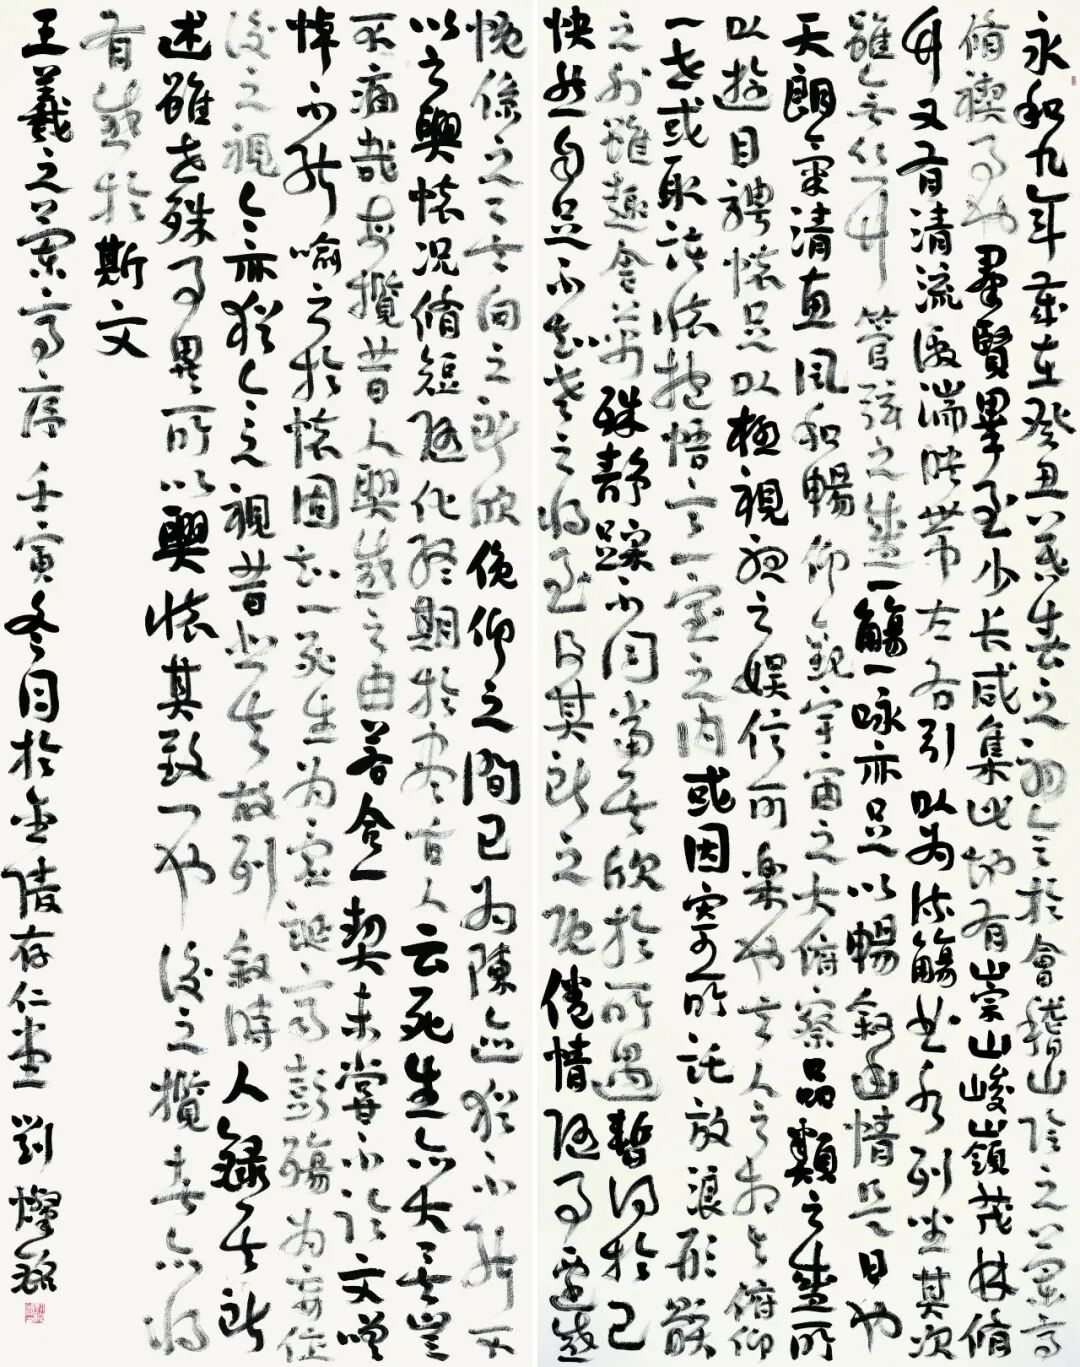 永和九年歲在癸丑暮春之初會於會稽山陰之蘭亭
脩禊事也羣賢畢至少長咸集此地有崇山峻嶺茂林脩
竹又有清流激湍映帶左右引以為流觴曲水列坐其次
雖無絲竹管弦之盛一觴一詠亦足以暢叙幽情是日也
天朗氣清惠風和暢仰觀宇宙之大俯察品類之盛所
以遊目騁懷足以極視聽之娛信可樂也夫人之相與俯仰
一世或取諸懷抱悟言一室之內或因寄所託放浪形骸
之外雖趣舍萬殊靜躁不同當其欣於所遇暫得於己
快然自足不知老之將至及其所之既倦情隨事遷感
慨係之矣向之所欣俛仰之間已為陳迹猶不能不
以之興懷況脩短隨化終期於盡古人云死生亦大矣豈
不痛哉每攬昔人興感之由若合一契未嘗不臨文嗟
悼不能喻之於懷固知一死生為虛誕齊彭殤為妄作
後之視今亦猶今之視昔悲夫故列叙時人錄其所
述雖世殊事異所以興懷其致一也後之攬者亦將
有感於斯文
王羲之蘭亭序 壬寅冬月於金陵存仁堂 劉燦銘